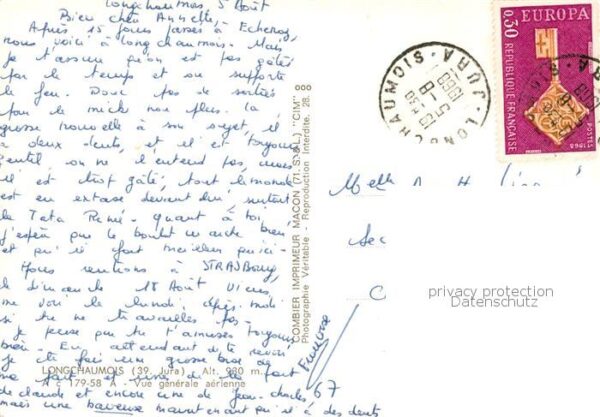 Longchaumois, 5 Août
Bien chère Annette,
Après 15 jours passés à Echenoz,
nous voici à Longchaumois. Mais
je t'assure qu'on est pas gâté
par le temps et on supporte
le feu. Donc pas de sorties
pour le mich non plus. La
grosse nouvelle à son sujet, il
a deux dents, et il est toujours
gentil on ne l'entend pas, mais
il est trop gâté, tout le monde
est en extase devant lui, surtout
la Tata Renée. quant à toi
j'espère que le boulot marche bien
et qu'il fait meilleur qu'ici.
Nous rentrons à STRASBOURG
le dimanche 18 Août viens
me voir le lundi après-midi
si tu ne travailles pas.
Je pense que tu t'amuses toujours
bien. En attendant de te revoir
je te fais une grosse bise de
ma part et une de la part
de claude et encore une de jean-charles
mais une baveuse maintenant qu'il a des dents
Françoise
67
LONGCHAUMOIS (39. Jura) - Alt. 930 m.
A c 179-58 A - Vue générale aérienne
COMBIER IMPRIMEUR MACON (71. S.-&-L.) "CIM"
Photographie Véritable - Reproduction Interdite. 28.
000
LONGCHAUMOIS · JURA
5-8
1968
EUROPA
0,30
REPUBLIQUE FRANÇAISE
POSTES
1968
Melle A H
Sec
C
privacy protection
Datenschutz